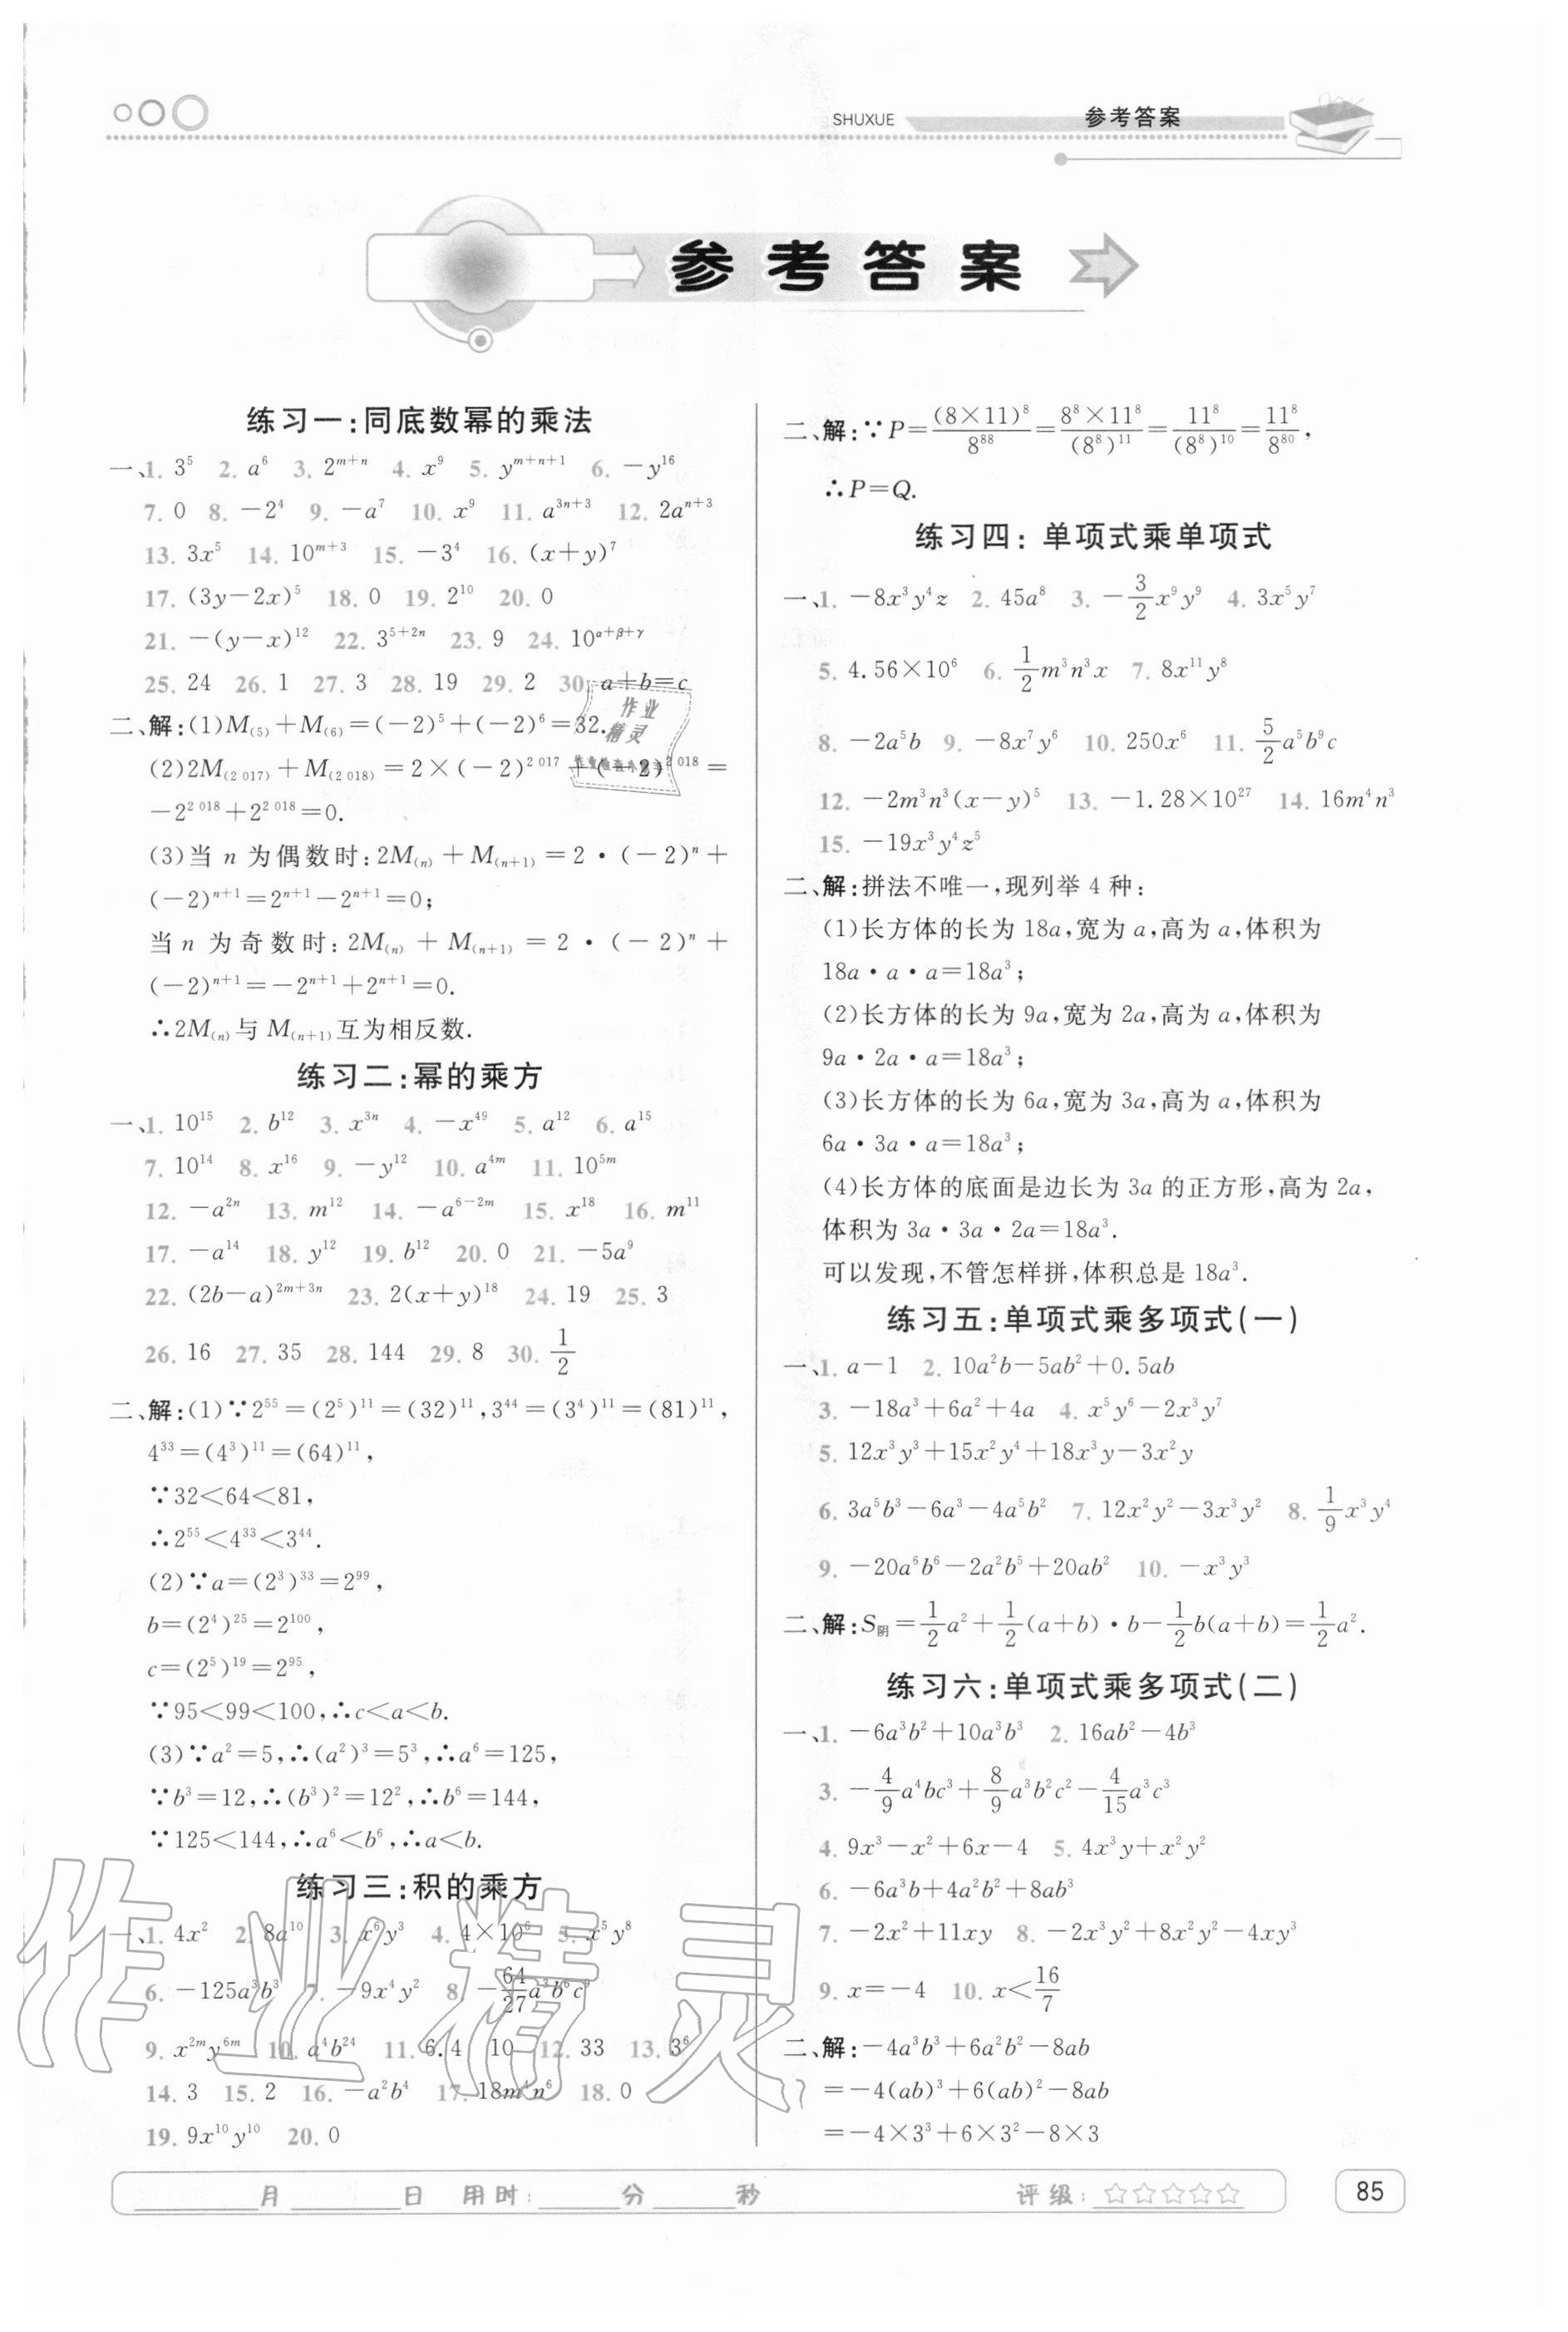 SHUXUE 参考答案
参考答案
练习一:同底数幂的乘法
一、1. 3⁵ 2. a⁶ 3. 2ᵐ⁺ⁿ 4. x⁹ 5. yᵐ⁺ⁿ⁺¹ 6. －y¹⁶
7. 0 8. －2⁴ 9. －a⁷ 10. x⁹ 11. a³ⁿ⁺³ 12. 2aⁿ⁺³
13. 3x⁵ 14. 10ᵐ⁺³ 15. －3⁴ 16. (x＋y)⁷
17. (3y－2x)⁵ 18. 0 19. 2¹⁰ 20. 0
21. －(y－x)¹² 22. 3⁵⁺²ⁿ 23. 9 24. 10^(α＋β＋γ)
25. 24 26. 1 27. 3 28. 19 29. 2 30. a＋b＝c
二、解:(1)M₍₅₎＋M₍₆₎＝(－2)⁵＋(－2)⁶＝32.
(2)2M₍₂ ₀₁₇₎＋M₍₂ ₀₁₈₎＝2×(－2)² ⁰¹⁷＋(－2)² ⁰¹⁸＝
－2² ⁰¹⁸＋2² ⁰¹⁸＝0.
(3)当 n 为偶数时:2M₍ₙ₎＋M₍ₙ₊₁₎＝2·(－2)ⁿ＋
(－2)ⁿ⁺¹＝2ⁿ⁺¹－2ⁿ⁺¹＝0;
当 n 为奇数时:2M₍ₙ₎＋M₍ₙ₊₁₎＝2·(－2)ⁿ＋
(－2)ⁿ⁺¹＝－2ⁿ⁺¹＋2ⁿ⁺¹＝0.
∴2M₍ₙ₎与 M₍ₙ₊₁₎互为相反数.
练习二:幂的乘方
一、1. 10¹⁵ 2. b¹² 3. x³ⁿ 4. －x⁴⁹ 5. a¹² 6. a¹⁵
7. 10¹⁴ 8. x¹⁶ 9. －y¹² 10. a⁴ᵐ 11. 10⁵ᵐ
12. －a²ⁿ 13. m¹² 14. －a⁶⁻²ᵐ 15. x¹⁸ 16. m¹¹
17. －a¹⁴ 18. y¹² 19. b¹² 20. 0 21. －5a⁹
22. (2b－a)²ᵐ⁺³ⁿ 23. 2(x＋y)¹⁸ 24. 19 25. 3
26. 16 27. 35 28. 144 29. 8 30. 1/2
二、解:(1)∵2⁵⁵＝(2⁵)¹¹＝(32)¹¹,3⁴⁴＝(3⁴)¹¹＝(81)¹¹,
4³³＝(4³)¹¹＝(64)¹¹,
∵32＜64＜81,
∴2⁵⁵＜4³³＜3⁴⁴.
(2)∵a＝(2³)³³＝2⁹⁹,
b＝(2⁴)²⁵＝2¹⁰⁰,
c＝(2⁵)¹⁹＝2⁹⁵,
∵95＜99＜100,∴c＜a＜b.
(3)∵a²＝5,∴(a²)³＝5³,∴a⁶＝125,
∵b³＝12,∴(b³)²＝12²,∴b⁶＝144,
∵125＜144,∴a⁶＜b⁶,∴a＜b.
练习三:积的乘方
一、1. 4x² 2. 8a¹⁰ 3. x⁶y³ 4. 4×10⁶ 5. x⁵y⁸
6. －125a³b³ 7. －9x⁴y² 8. －64/27a³b⁶c⁹
9. x²ᵐy⁶ᵐ 10. a⁴b²⁴ 11. 6.4 10 12. 33 13. 3⁶
14. 3 15. 2 16. －a²b⁴ 17. 18m⁴n⁶ 18. 0
19. 9x¹⁰y¹⁰ 20. 0
二、解:∵P＝(8×11)⁸/8⁸⁸＝8⁸×11⁸/(8⁸)¹¹＝11⁸/(8⁸)¹⁰＝11⁸/8⁸⁰,
∴P＝Q.
练习四: 单项式乘单项式
一、1. －8x³y⁴z 2. 45a⁸ 3. －3/2x⁹y⁹ 4. 3x⁵y⁷
5. 4.56×10⁶ 6. 1/2m³n³x 7. 8x¹¹y⁸
8. －2a⁵b 9. －8x⁷y⁶ 10. 250x⁶ 11. 5/2a⁵b⁹c
12. －2m³n³(x－y)⁵ 13. －1.28×10²⁷ 14. 16m⁴n³
15. －19x³y⁴z⁵
二、解:拼法不唯一,现列举 4 种:
(1)长方体的长为 18a,宽为 a,高为 a,体积为
18a·a·a＝18a³;
(2)长方体的长为 9a,宽为 2a,高为 a,体积为
9a·2a·a＝18a³;
(3)长方体的长为 6a,宽为 3a,高为 a,体积为
6a·3a·a＝18a³;
(4)长方体的底面是边长为 3a 的正方形,高为 2a,
体积为 3a·3a·2a＝18a³.
可以发现,不管怎样拼,体积总是 18a³.
练习五:单项式乘多项式(一)
一、1. a－1 2. 10a²b－5ab²＋0.5ab
3. －18a³＋6a²＋4a 4. x⁵y⁶－2x³y⁷
5. 12x³y³＋15x²y⁴＋18x³y－3x²y
6. 3a⁵b³－6a³－4a⁵b² 7. 12x²y²－3x³y² 8. 1/9x³y⁴
9. －20a⁶b⁶－2a²b⁵＋20ab² 10. －x³y³
二、解:S阴＝1/2a²＋1/2(a＋b)·b－1/2b(a＋b)＝1/2a².
练习六:单项式乘多项式(二)
一、1. －6a³b²＋10a³b³ 2. 16ab²－4b³
3. －4/9a⁴bc³＋8/9a³b²c²－4/15a³c³
4. 9x³－x²＋6x－4 5. 4x³y＋x²y²
6. －6a³b＋4a²b²＋8ab³
7. －2x²＋11xy 8. －2x³y²＋8x²y²－4xy³
9. x＝－4 10. x＜16/7
二、解:－4a³b³＋6a²b²－8ab
＝－4(ab)³＋6(ab)²－8ab
＝－4×3³＋6×3²－8×3
月 日 用时: 分 秒 评级:☆☆☆☆☆
85
作业精灵
作业
精灵